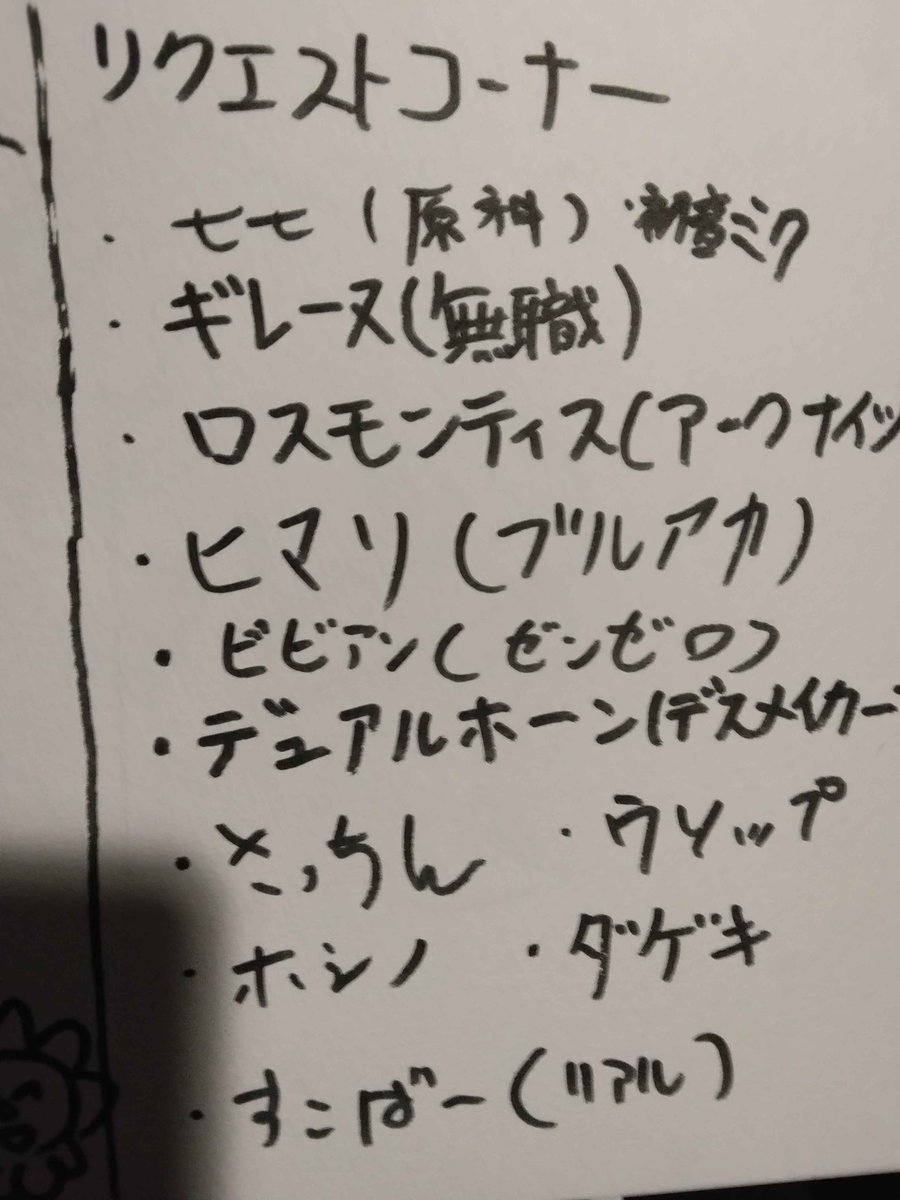 リクエストコーナー
・七七(原神)・初音ミク
・ギレーヌ(無職)
・ロスモンティス(アークナイツ
・ヒマリ(ブルアカ)
・ビビアン(ゼンゼロ)
・デュアルホーン(デスメイカー
・さっちん ・ウソップ
・ホシノ ・ダゲキ
・すこばー(リアル)